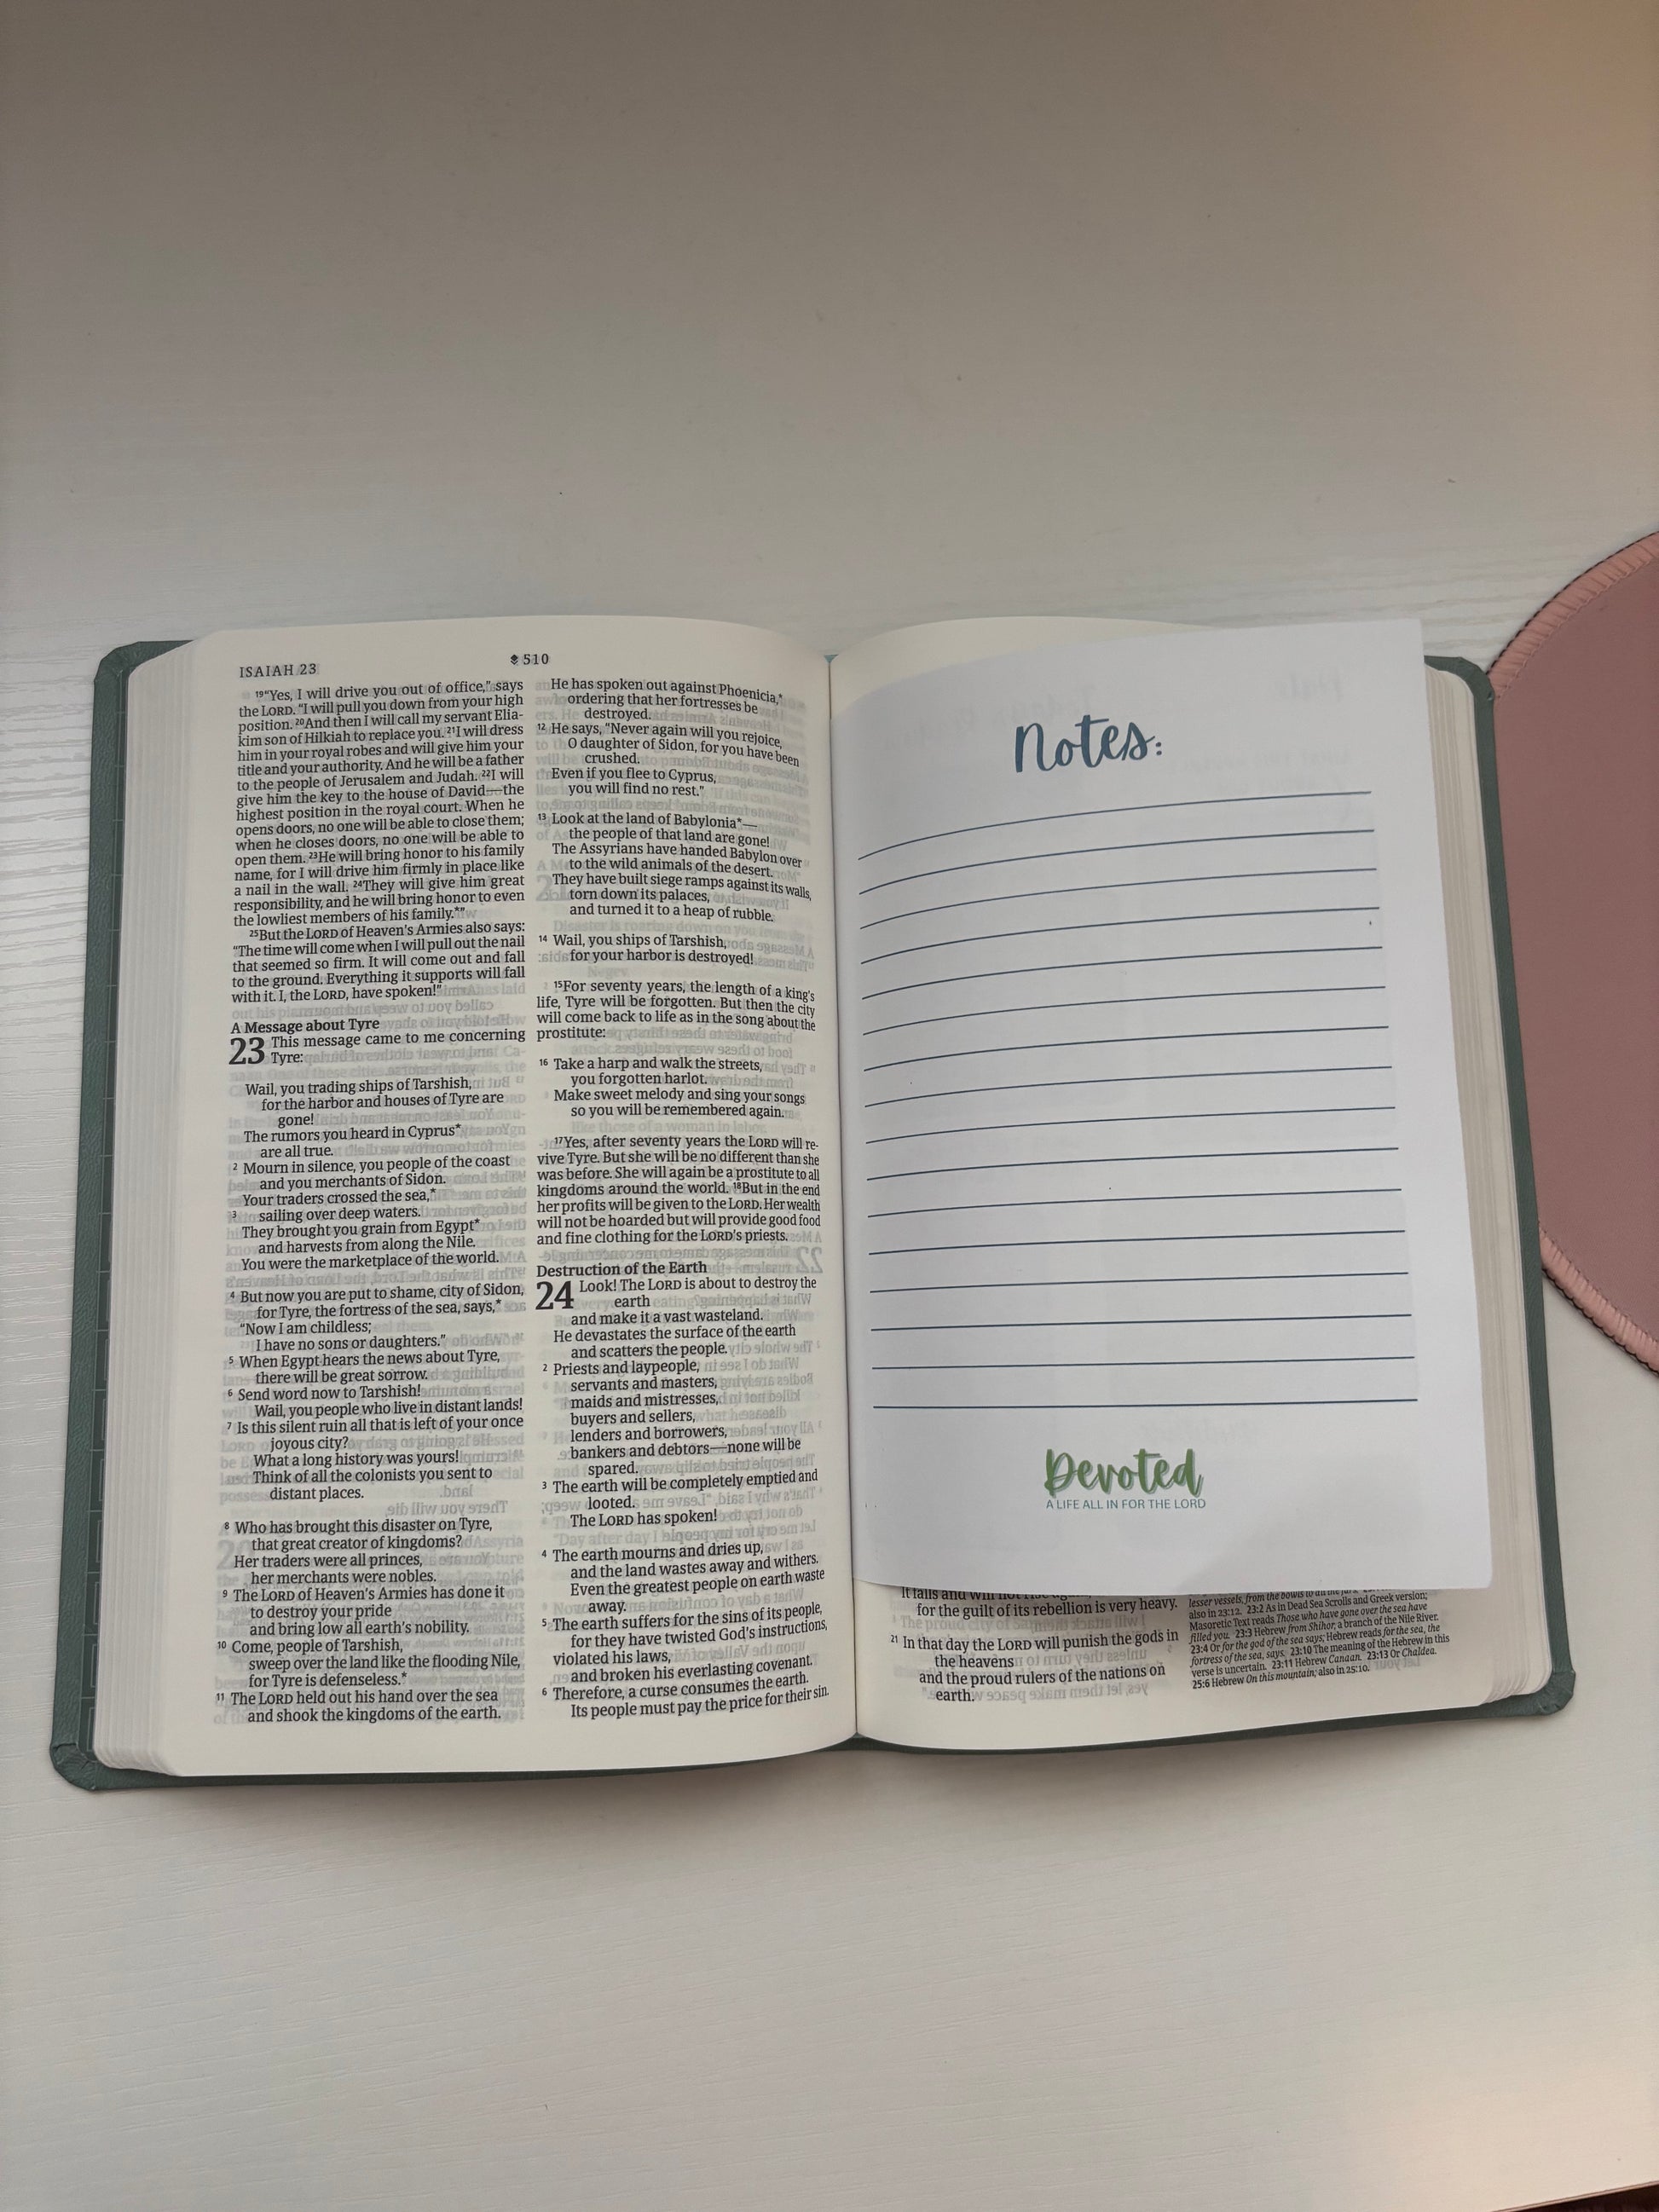 ISAIAH 23
510
19“Yes, I will drive you out of office,” says
the LORD. “I will pull you down from your high
position. 20And then I will call my servant Elia-
kim son of Hilkiah to replace you. 21I will dress
him in your royal robes and will give him your
title and your authority. And he will be a father
to the people of Jerusalem and Judah. 22I will
give him the key to the house of David—the
highest position in the royal court. When he
opens doors, no one will be able to close them;
when he closes doors, no one will be able to
open them. 23He will bring honor to his family
name, for I will drive him firmly in place like
a nail in the wall. 24They will give him great
responsibility, and he will bring honor to even
the lowliest members of his family.*”
25But the LORD of Heaven’s Armies also says:
“The time will come when I will pull out the nail
that seemed so firm. It will come out and fall
to the ground. Everything it supports will fall
with it. I, the LORD, have spoken!”
A Message about Tyre
23 This message came to me concerning
Tyre:
Wail, you trading ships of Tarshish,
for the harbor and houses of Tyre are
gone!
The rumors you heard in Cyprus*
are all true.
2 Mourn in silence, you people of the coast
and you merchants of Sidon.
Your traders crossed the sea,*
3 sailing over deep waters.
They brought you grain from Egypt*
and harvests from along the Nile.
You were the marketplace of the world.
4 But now you are put to shame, city of Sidon,
for Tyre, the fortress of the sea, says,*
“Now I am childless;
I have no sons or daughters.”
5 When Egypt hears the news about Tyre,
there will be great sorrow.
6 Send word now to Tarshish!
Wail, you people who live in distant lands!
7 Is this silent ruin all that is left of your once
joyous city?
What a long history was yours!
Think of all the colonists you sent to
distant places.
8 Who has brought this disaster on Tyre,
that great creator of kingdoms?
Her traders were all princes,
her merchants were nobles.
9 The LORD of Heaven’s Armies has done it
to destroy your pride
and bring low all earth’s nobility.
10 Come, people of Tarshish,
sweep over the land like the flooding Nile,
for Tyre is defenseless.*
11 The LORD held out his hand over the sea
and shook the kingdoms of the earth.
He has spoken out against Phoenicia,*
ordering that her fortresses be
destroyed.
12 He says, “Never again will you rejoice,
O daughter of Sidon, for you have been
crushed.
Even if you flee to Cyprus,
you will find no rest.”
13 Look at the land of Babylonia*—
the people of that land are gone!
The Assyrians have handed Babylon over
to the wild animals of the desert.
They have built siege ramps against its walls,
torn down its palaces,
and turned it to a heap of rubble.
14 Wail, you ships of Tarshish,
for your harbor is destroyed!
15For seventy years, the length of a king’s
life, Tyre will be forgotten. But then the city
will come back to life as in the song about the
prostitute:
16 Take a harp and walk the streets,
you forgotten harlot.
Make sweet melody and sing your songs
so you will be remembered again.
17Yes, after seventy years the LORD will re-
vive Tyre. But she will be no different than she
was before. She will again be a prostitute to all
kingdoms around the world. 18But in the end
her profits will be given to the LORD. Her wealth
will not be hoarded but will provide good food
and fine clothing for the LORD’s priests.
Destruction of the Earth
24 Look! The LORD is about to destroy the
earth
and make it a vast wasteland.
He devastates the surface of the earth
and scatters the people.
2 Priests and laypeople,
servants and masters,
maids and mistresses,
buyers and sellers,
lenders and borrowers,
bankers and debtors—none will be
spared.
3 The earth will be completely emptied and
looted.
The LORD has spoken!
4 The earth mourns and dries up,
and the land wastes away and withers.
Even the greatest people on earth waste
away.
5 The earth suffers for the sins of its people,
for they have twisted God’s instructions,
violated his laws,
and broken his everlasting covenant.
6 Therefore, a curse consumes the earth.
Its people must pay the price for their sin.
Notes:
Devoted
A LIFE ALL IN FOR THE LORD
It falls and will not
for the guilt of its rebellion is very heavy.
21 In that day the LORD will punish the gods in
the heavens
and the proud rulers of the nations on
earth.
lesser vessels, from the bowls to all the
also in 23:12. 23:2 As in Dead Sea Scrolls and Greek version;
Masoretic Text reads Those who have gone over the sea have
filled you. 23:3 Hebrew from Shihor, a branch of the Nile River.
23:4 Or for the god of the sea says; Hebrew reads for the sea, the
fortress of the sea, says. 23:10 The meaning of the Hebrew in this
verse is uncertain. 23:11 Hebrew Canaan. 23:13 Or Chaldea.
25:6 Hebrew On this mountain; also in 25:10.